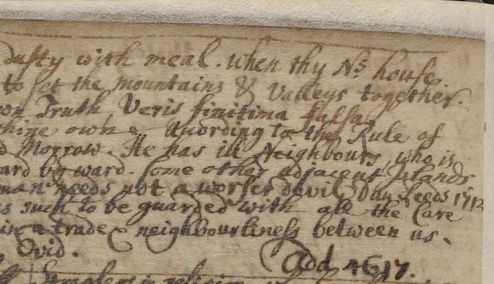 dusty with meal. when thy Ns. house
to set the mountains & Valleys together.
own Truth Veris finitima falsa,
thine own. According to the Rule of
d Morrow. He has ill Neighbours, who is
ward by ward. Some other adjacent Islands
man needs not a worser devil. Dan. Leeds 1712
es such to be guarded with all the Care
in a trade & neighbourliness between us.
Ovid.
Add. 4617.
in religion